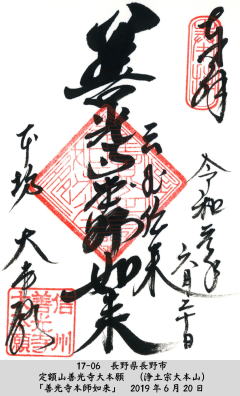 奉拝
善光寺本師如来
令和元年
六月二十日
本坊
大本願
信州
善光寺
大本願
17-06 長野県長野市
定額山善光寺大本願 (浄土宗大本山)
「善光寺本師如来」 2019年6月20日